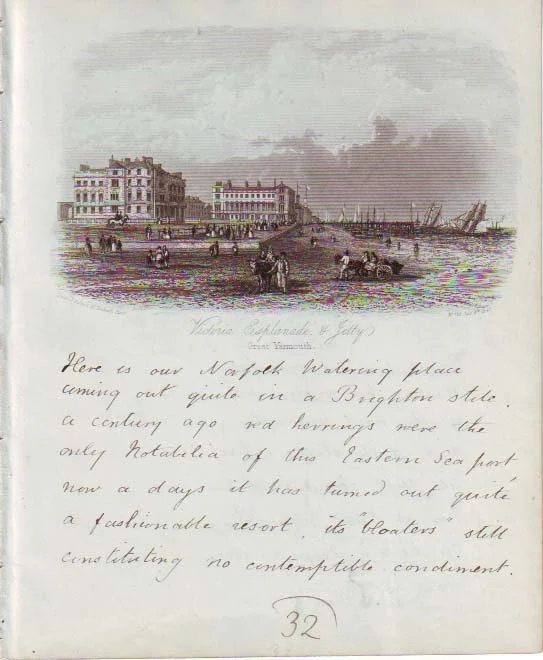 Victoria Esplanade, & Jetty,
Great Yarmouth.
Here is our Norfolk Watering place
coming out quite in a Brighton stile.
a century ago red herrings were the
only Notabilia of this Eastern Sea port
now a days it has turned out quite
a fashionable resort. its "bloaters" still
constituting no contemptible condiment.
32